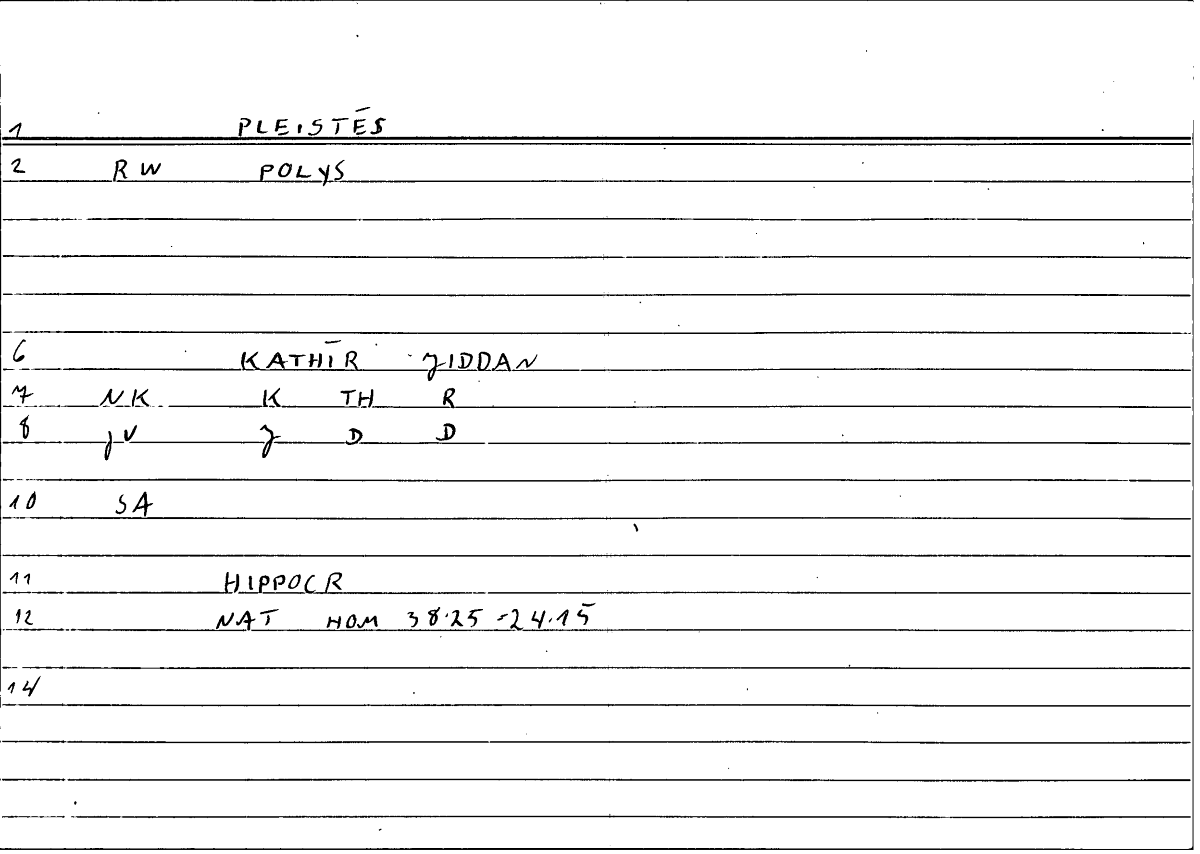 1 PLEISTĒS
2 RW POLYS
6 KATHĪR JIDDAN
7 NK K TH R
8 JV J D D
10 SA
11 HIPPOCR
12 NAT HOM 38.25 = 24.15
14